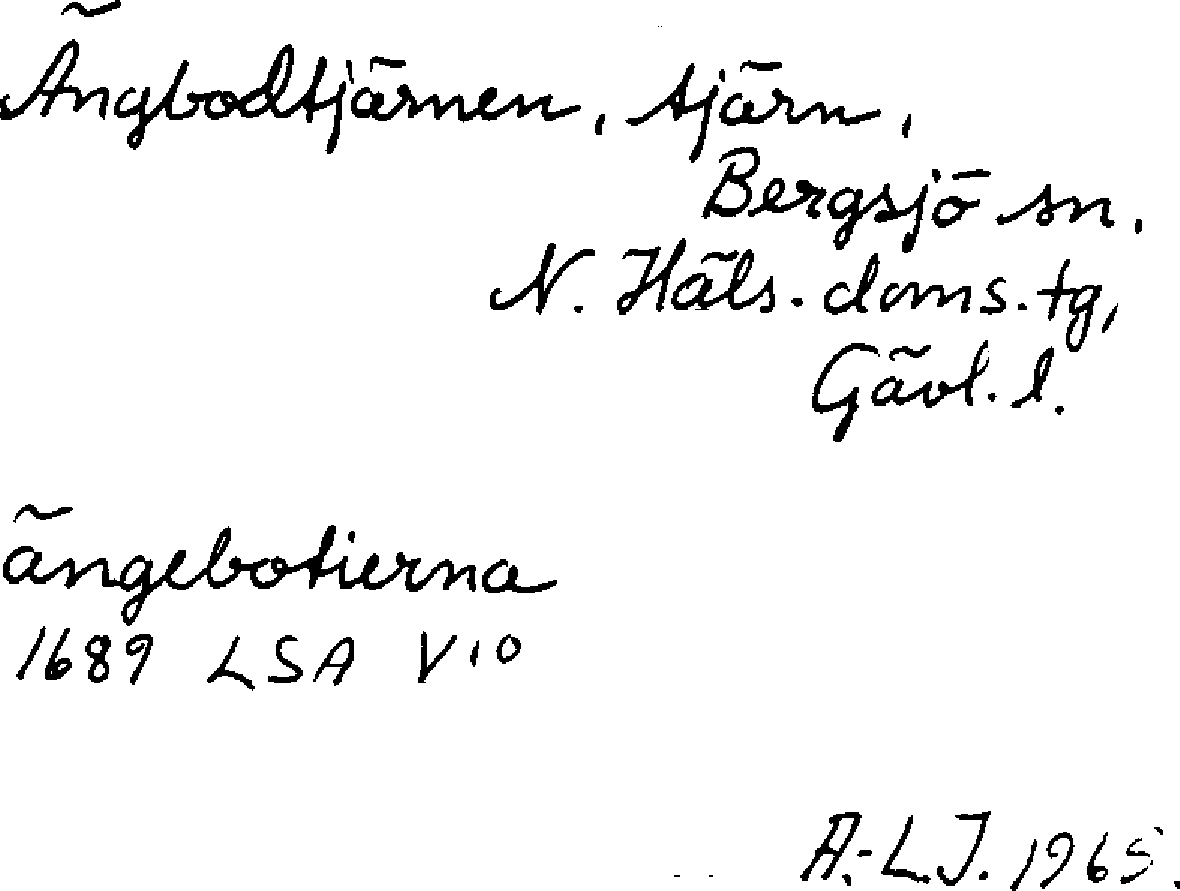 Ängbodtjärnen, tjärn,
Bergsjö sn.
N. Häls. doms. tg,
Gävl. l.
ängebotierna
1689 LSA V10
A.-L.J. 1965.